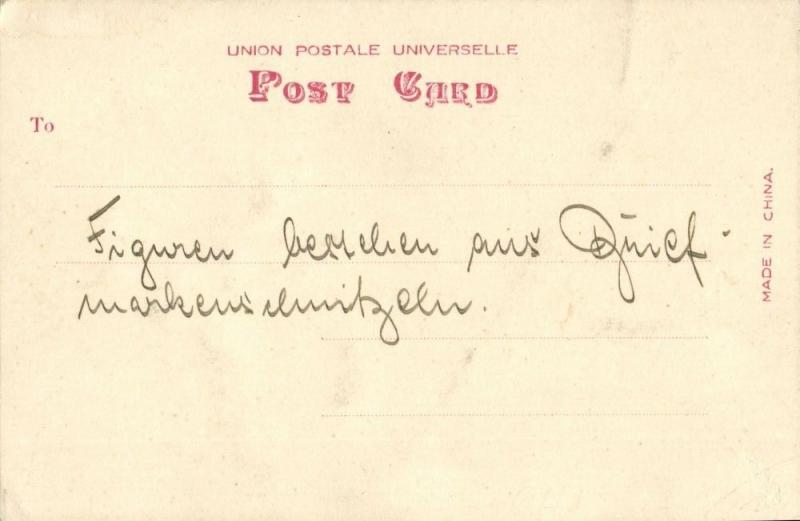 UNION POSTALE UNIVERSELLE
POST CARD
To
Figuren bestehen aus Brief-
markenschnitzeln.
MADE IN CHINA.